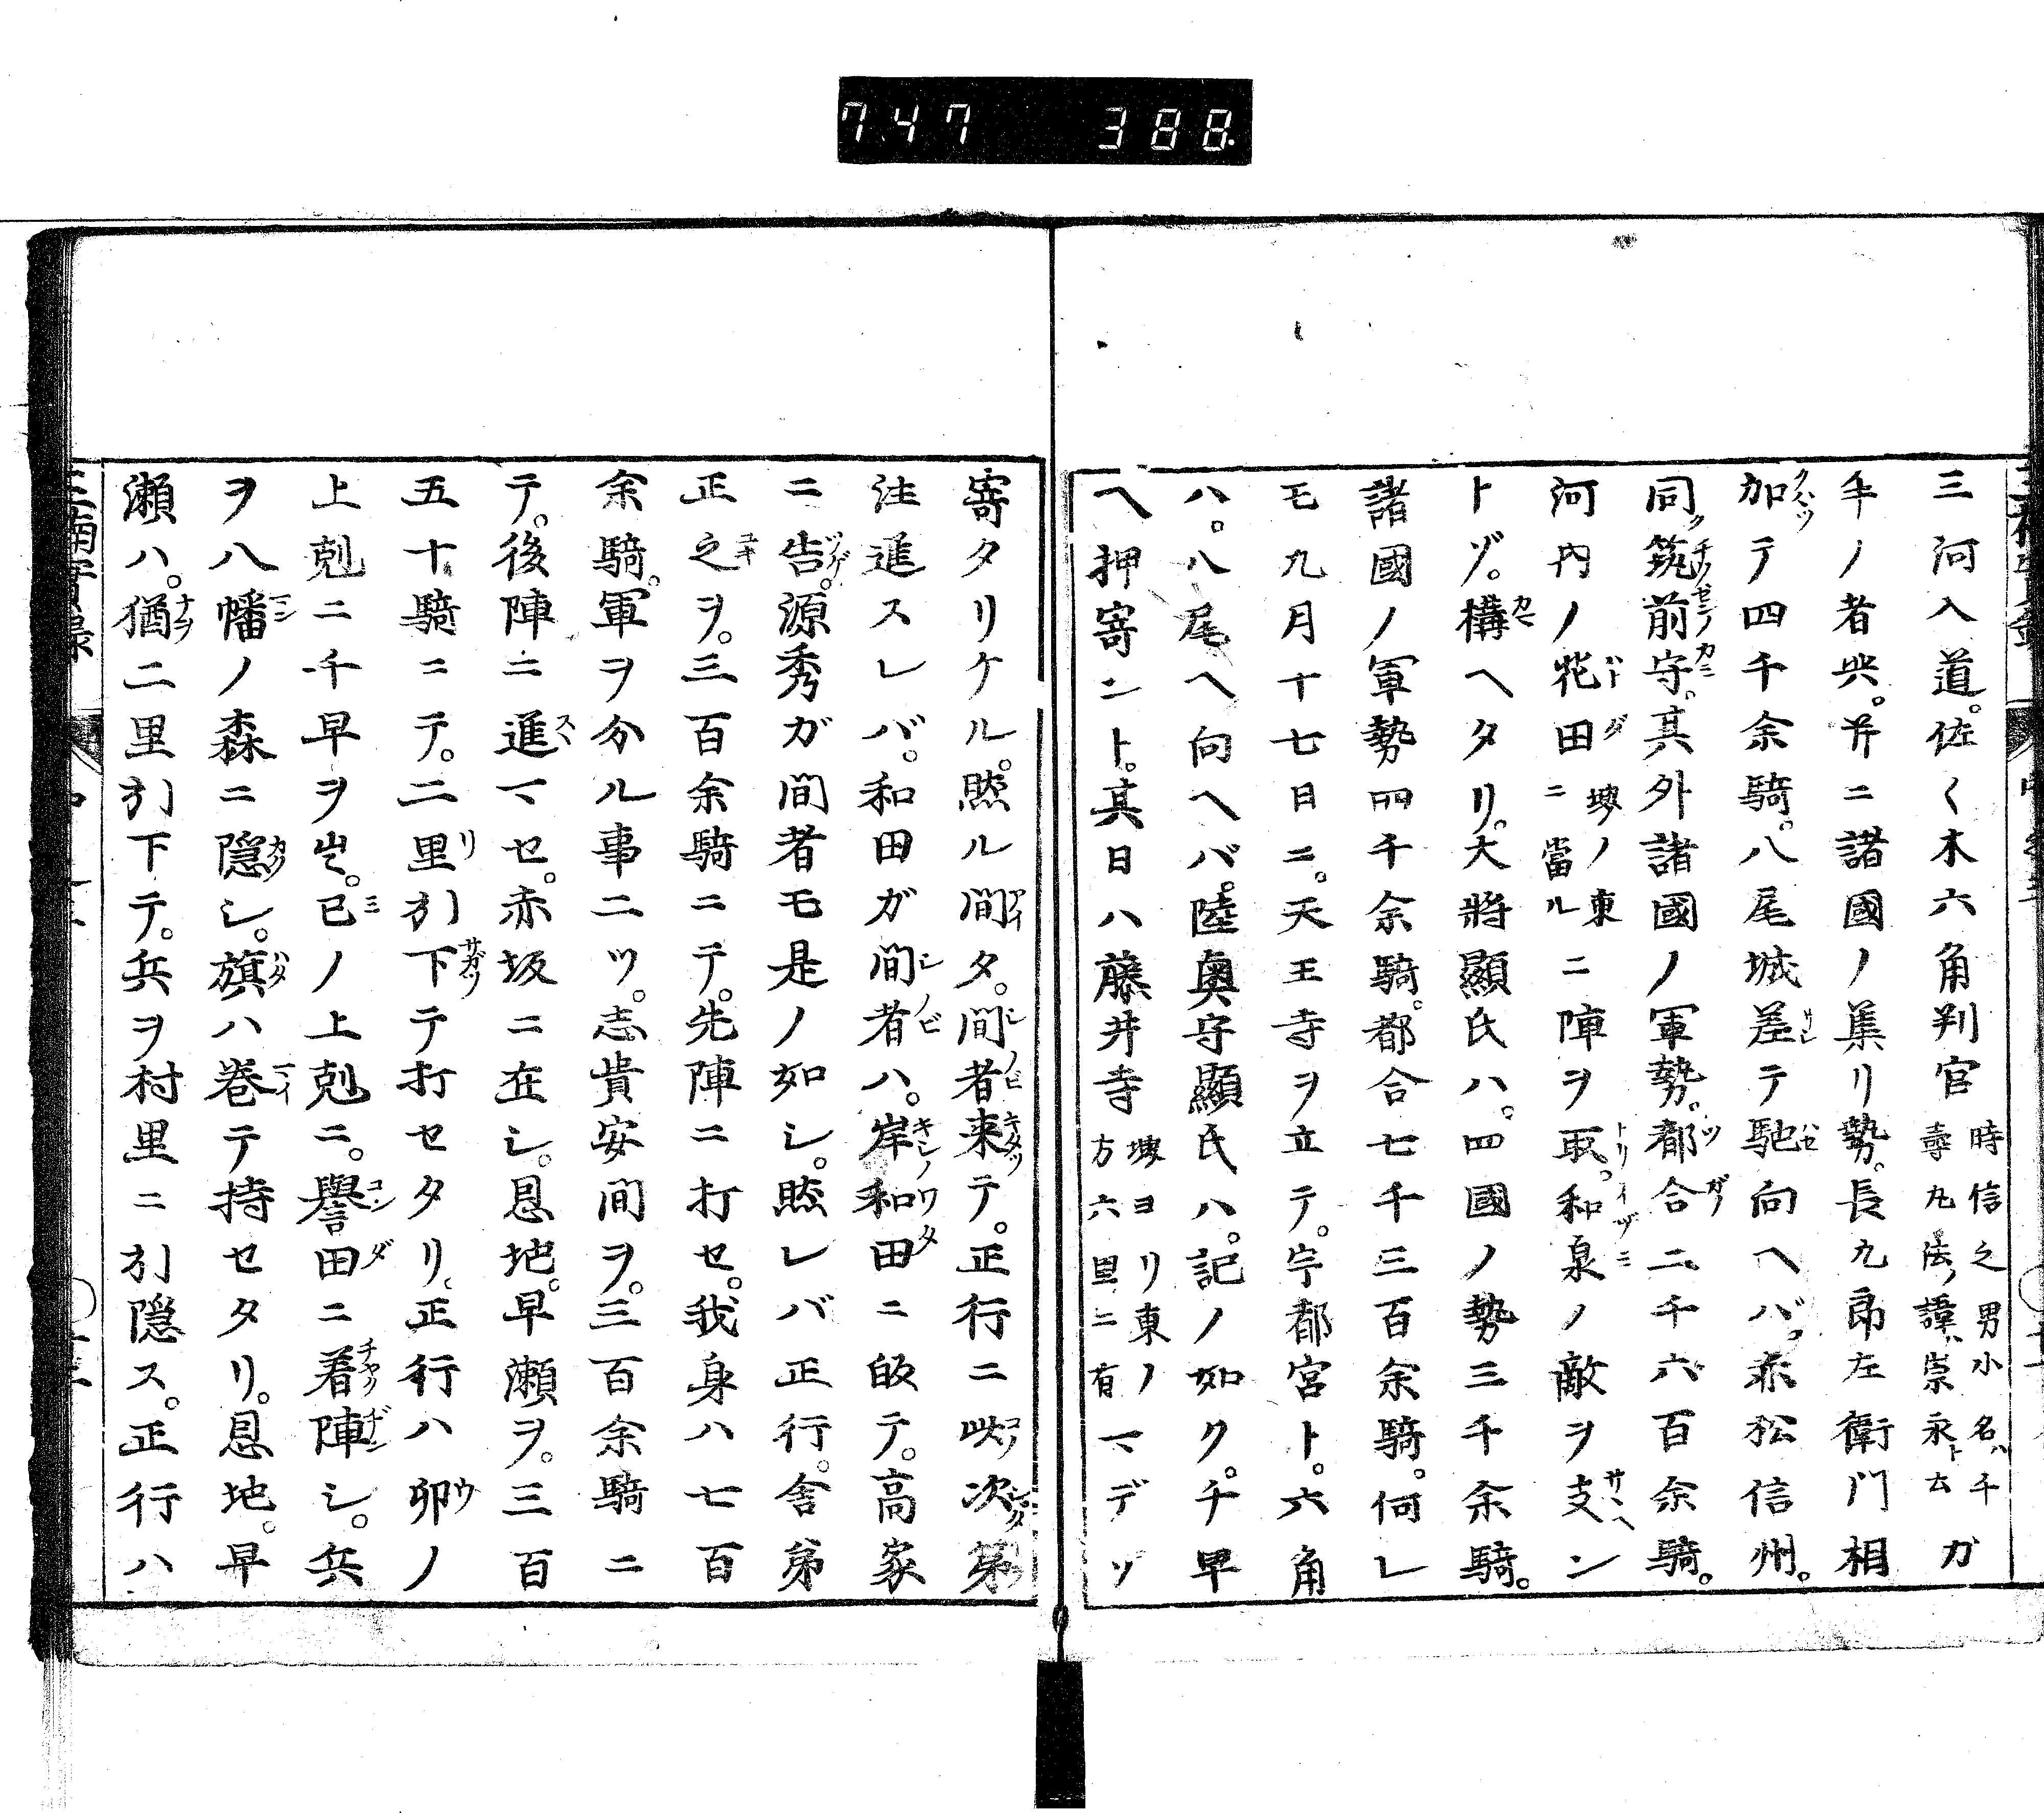 7.47 388.
三河入道。佐〱木六角判官時信之男小名ハ千壽丸法ノ諱ハ崇永ト云ガ
手ノ者共。并ニ諸國ノ集リ勢。長九郎左衛門相
加テ四千余騎。八尾城差テ馳向ヘバ。赤松信州。
同筑前守。其外諸國ノ軍勢。都合二千六百余騎。
河内ノ花田ニ堺ノ東ニ當ル陣ヲ取。和泉ノ敵ヲ支ン
トゾ。構ヘタリ。大將顯氏ハ。四國ノ勢三千余騎。
諸國ノ軍勢四千余騎。都合七千三百余騎。何レ
モ九月十七日ニ。天王寺ヲ立テ。宇都宮ト。六角
ハ。八尾ヘ向ヘバ。陸奥守顯氏ハ。記ノ如ク。千早
ヘ押寄ント。其日ハ藤井寺堺ヨリ東ノ方六里ニ有マデゾ
寄タリケル。然ル間タ。間者来テ。正行ニ此次第
注進スレバ。和田ガ間者ハ。岸和田ニ皈テ。高家
ニ告。源秀ガ間者モ是ノ如シ。然レバ正行。舎弟
正之ヲ。三百余騎ニテ。先陣ニ打セ。我身ハ七百
余騎。軍ヲ分ル事二ツ。志貴安間ヲ。三百余騎ニ
テ。後陣ニ進マセ。赤坂ニ在シ。恩地。早瀬ヲ。三百
五十騎ニテ。二里引下テ打セタリ。正行ハ卯ノ
上剋ニ千早ヲ出。巳ノ上剋ニ。譽田ニ着陣シ。兵
ヲ八幡ノ森ニ隠シ。旗ハ巻テ持セタリ。恩地。早
瀬ハ。猶二里引下テ。兵ヲ村里ニ引隠ス。正行ハ